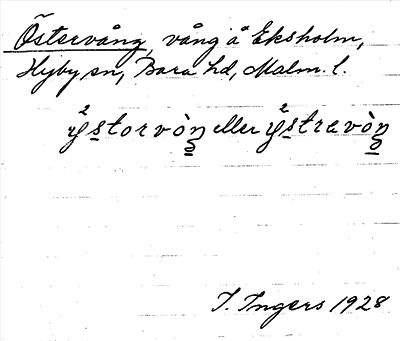 Östervång, vång å Eksholm,
Hyby sn, Bara hd, Malm. l.
ýstorvòn eller ýstravòn
I. Ingers 1928